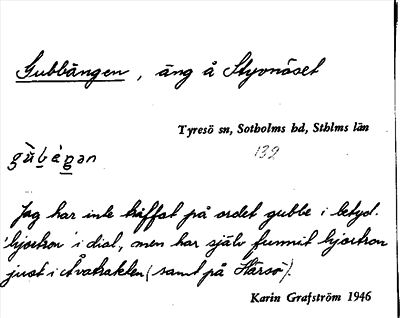 Gubbängen, äng å Styvnäset
Tyresö sn, Sotholms hd, Sthlms län
139
Jag har inte träffat på ordet gubbe i betyd.
'hjortron' i dial, men har själv funnit hjortron
just i Åvatrakten (samt på Ittersö).
Karin Grafström 1946